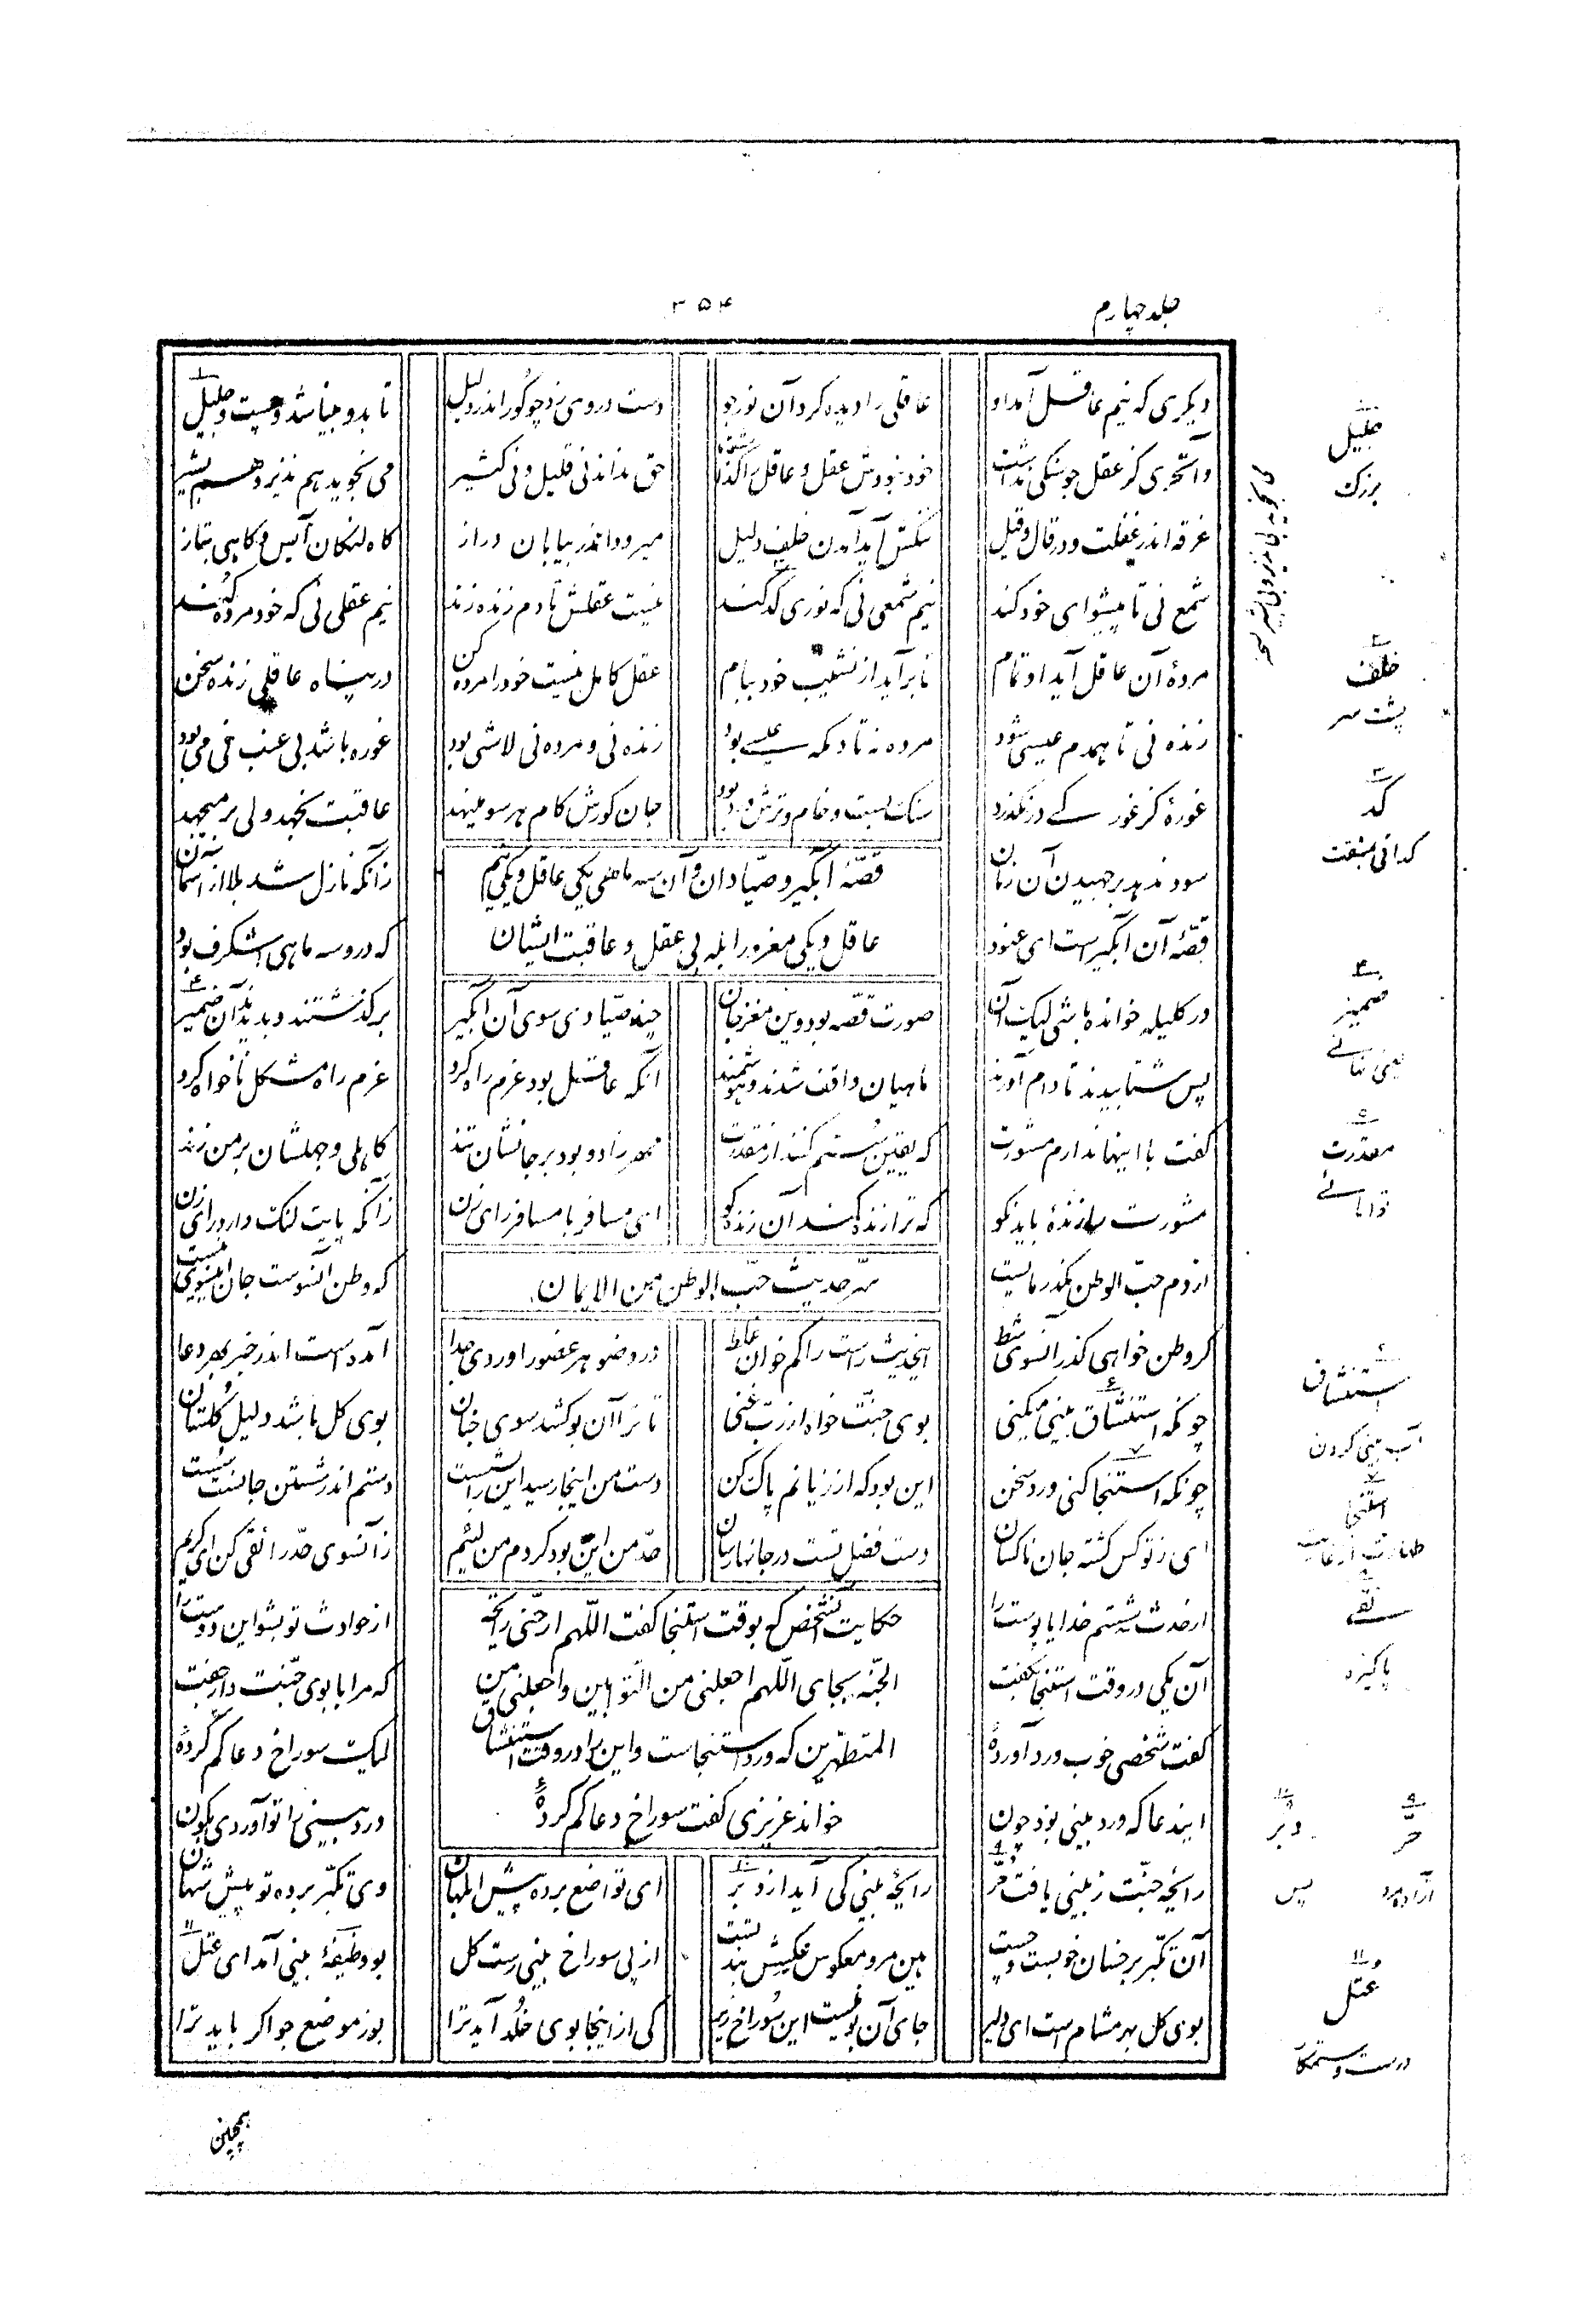 جلد چهارم
۳۵۴
دیگری که نیم عاقل آمد او عاقلی را دیده کرد آن نورجو دست در وی زد چو کور اندر دلیل تا بدو بینا شد و چست و جلیل
وآنخری کز عقل جوسنگی نداشت خود نبودش عقل و عاقل را گذاشت حق نداند نی قلیل و نی کثیر می نجوید هم نذیر و هم بشیر
غرقه اندر غفلت و در قال و قیل ننگش آید آمدن خلف دلیل میرود اندر بیابان دراز گاه لنگان آیس و گاهی بتاز
شمع نی تا پیشوای خود کند نیم شمعی نی که نوری کد کند نیست عقلش تا دم زنده زند نیم عقلی نی که خود مرده کند
مردهٔ آن عاقل آید او تمام تا برآید از نشیب خود ببام عقل کامل نیست خود را مرده کن در پناه عاقلی زنده سخن
زنده نی تا همدم عیسی شود مرده نه تا دمگه عیسی بود زنده نی و مرده نی لاشی بود غوره باشد بی عنب نی می بود
غورهٔ کز غورگی درنگذرد سنگ بست و خام و ترش و رد بود جان کورش گام هر سو مینهد عاقبت نجهد ولی برمیجهد
سود ندهد برجهیدن آن زمان زانکه نازل شد بلا از آسمان
قصّهٔ آبگیر و صیّادان و آن سه ماهی یکی عاقل و یکی نیم
عاقل و یکی مغرور ابله بی عقل و عاقبت ایشان
قصّهٔ آن آبگیر است ای عنود که درو سه ماهی اشگرف بود
در کلیله خوانده باشی لیک آن صورت قصّه بود وین مغز جان چند صیّادی سوی آن آبگیر برگذشتند و بدیدند آن ضمیر
پس شتابیدند تا دام آورند ماهیان واقف شدند و هوشمند آنکه عاقل بود عزم راه کرد عزم راه مشکل ناخواه کرد
گفت با اینها ندارم مشورت که یقین سستم کنند از مقدرت مهر زاد و بود بر جانشان تند کاهلی و جهلشان بر من زند
مشورت را زندهٔ باید نکو که ترا زنده کند آن زنده کو ای مسافر با مسافر رای زن زآنکه پایت لنگ دارد رای زن
از دم حبّ الوطن بگذر مایست که وطن آنسوست جان اینسوی نیست
سّر حدیث حبّ الوطن من الایمان
گر وطن خواهی گذر آنسوی شط اینحدیث راست را کم خوان غلط در وضو هر عضو را وردی جدا آمده است اندر خبر بهر دعا
چونکه استنشاق بینی میکنی بوی جنّت خواه از ربّ غنی تا ترا آن بو کشد سوی جنان بوی گل باشد دلیل گلستان
چونکه استنجا کنی ورد سخن این بود که از زیانم پاک کن دست من اینجا رسید این را بشست دستم اندر شستن جانست سست
ای ز تو کس گشته جان ناکسان دست فضل تست در جانها رسان حدّ من این بود کردم من لئیم زآنسوی حدّ را نقی کن ای کریم
از حدث شستم خدایا پوست را از حوادث تو بشو این دوست را
حکایت آنشخص که بوقت استنجا گفت اللّهم ارحنی رایحة
الجنّه بجای اللّهم اجعلنی من التّوابین واجعلنی من
المتطهّرین که ورد استنجاست و این را در وقت استنشاق
خواند عزیزی گفت سوراخ دعا گم کردهٔ
آن یکی در وقت استنجا بگفت که مرا با بوی جنّت دار جفت
گفت شخصی خوب ورد آوردهٔ لیک سوراخ دعا گم کردهٔ
ایندعا که ورد بینی بود چون ورد بینی را تو آوردی بکون
رایحهٔ جنّت ز بینی یافت حُرّ رایحهٔ بینی کی آید از دبر ای تواضع برده پیش ابلهان وی تکبّر برده تو پیش شهان
آن تکبّر بر خسان خوبست و چست هین مرو معکوس عکسش بند تست از پی سوراخ بینی رست گل بو وظیفهٔ بینی آمد ای عتل
بوی گل بهر مشام است ای دلیر جای آن بو نیست این سوراخ زیر کی از اینجا بوی خُلد آید ترا بو ز موضع جو اگر باید ترا
همچنین
جلیل
بزرگ
می نجوید
خلف
پشت سر
کد
گدائی بمشقت
ضمیر
یعنی نهانی
مقدرت
توانائی
استنشاق
آب بینی کردن
استنجا
نقی
پاکیزه
حُرّ
آزاده مرد
دُبر
پس
عتل
درشت و ستمکار